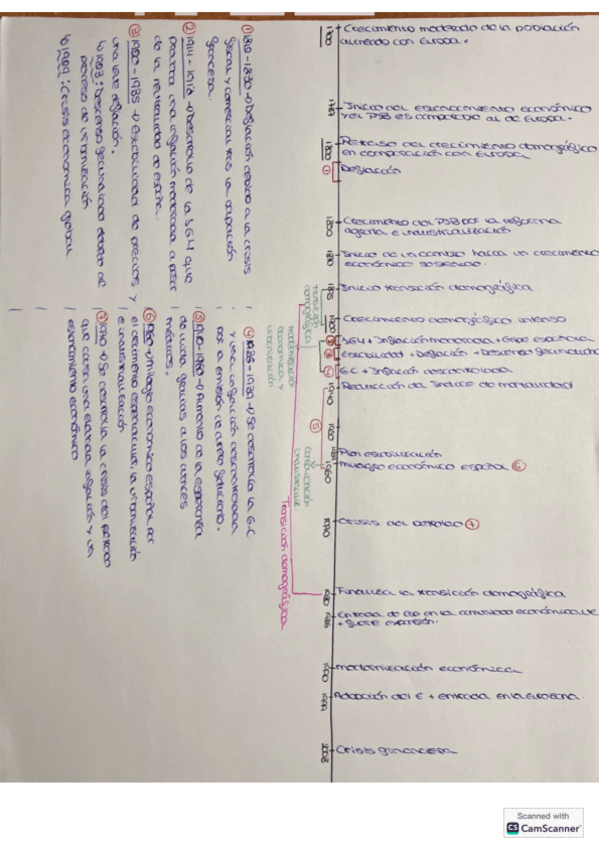 1700 Crecimiento moderado de la población
acuerdo con Europa.
Inicio del estancamiento económico
y el PIB es comparado al de Europa.
1800 Retraso del crecimiento demográfico
en comparación con Europa
① Deflación
Crecimiento del PIB por la reforma
agraria e industrialización
Inicio de un cambio hacia un crecimiento
económico sostenido.
Inicio transición demográfica
1900 Crecimiento demográfico intenso
② IGM + Inflación moderada + Gripe española
③ Estabilidad + Deflación + Descenso fecundidad
④ G.C + Inflación descontrolada
1940 Reducción del índice de mortalidad
1950
⑤
Plan estabilización
1960 milagro económico español ⑥
1970 Crisis del petróleo ⑦
Finaliza la transición demográfica
1985 Entrada de ESP en la comunidad económica UE
+ fuerte expansión.
1990 modernización económica
1999 Adopción del € + entrada en la eurozona.
2008 Crisis financiera
Transición
demográfica
modernización
económica y
urbanización
Transición demográfica
① 1810-1830 → Deflación debido a la crisis
fiscal y comercial tras la ocupación
francesa.
② 1914-1918 → Desarrollo de la IGM que
provoca una inflación moderada a pesar
de la neutralidad de España.
③ 1920-1935 → Estabilidad de precios y
una leve deflación.
↳ 1923: Descenso fecundidad debido al
proceso de urbanización
↳ 1929: Crisis económica global
④ 1936-1939 → Se desarrolla la G.C
y una inflación descontrolada
por la emisión de dinero fiduciario.
⑤ 1940-1960 → Aumento de la esperanza
de vida gracias a los avances
médicos.
⑥ 1960 → Milagro económico español por
el crecimiento espectacular, la urbanización
e industrialización
⑦ 1970 → Se desarrolla la crisis del petróleo
que causa una elevada inflación y un
estancamiento económico
Scanned with
CS CamScanner